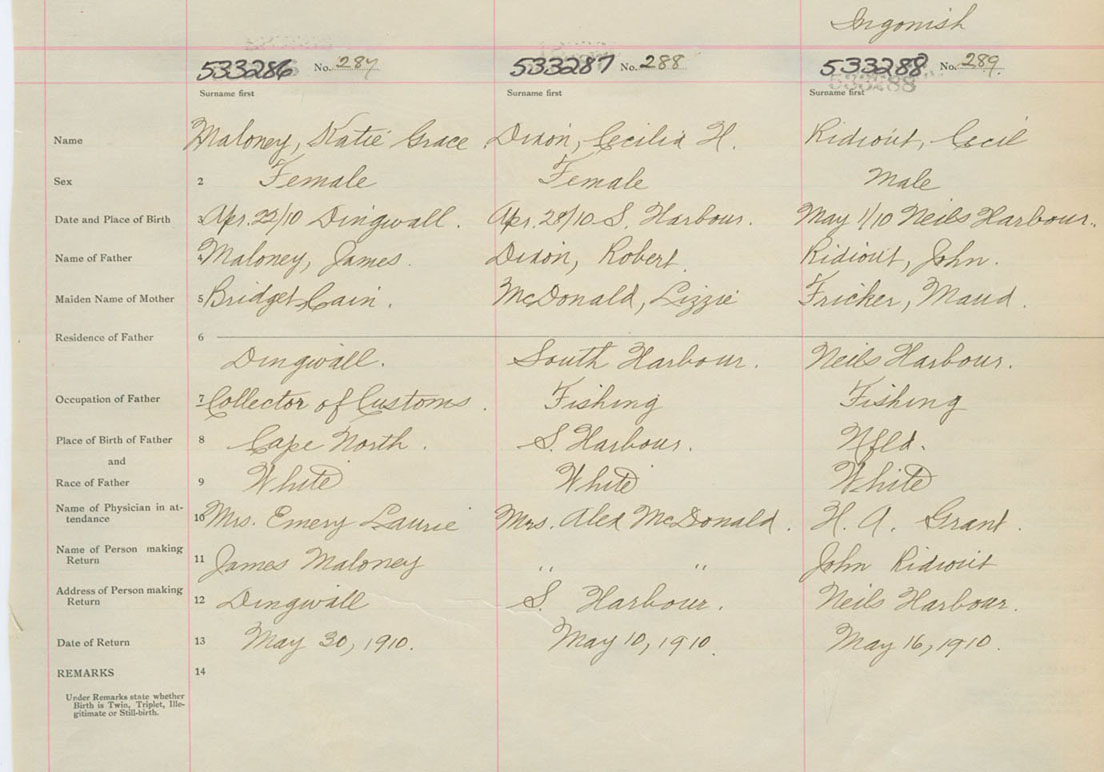 Ingonish
533286 No. 287 533287 No. 288 533288 No. 289
533288
Surname first Surname first Surname first
Name Maloney, Katie Grace Dixon, Cecilia H. Ridiout, Cecil
Sex 2 Female Female Male
Date and Place of Birth 3 Apr. 22/10 Dingwall. Apr. 28/10 S. Harbour. May 1/10 Neils Harbour.
Name of Father Maloney, James. Dixon, Robert. Ridiout, John.
Maiden Name of Mother 5 Bridget Cain. McDonald, Lizzie Fricker, Maud.
Residence of Father 6
Dingwall. South Harbour. Neils Harbour.
Occupation of Father 7 Collector of Customs. Fishing Fishing
Place of Birth of Father 8 Cape North. S. Harbour. Nfld.
and
Race of Father 9 White White White
Name of Physician in at-
tendance 10 Mrs. Emery Laurie Mrs. Alex McDonald. H. A. Grant.
Name of Person making
Return 11 James Maloney " " John Ridiout
Address of Person making
Return 12 Dingwall S. Harbour. Neils Harbour.
Date of Return 13 May 30, 1910. May 10, 1910. May 16, 1910.
REMARKS 14
Under Remarks state whether
Birth is Twin, Triplet, Ille-
gitimate or Still-birth.